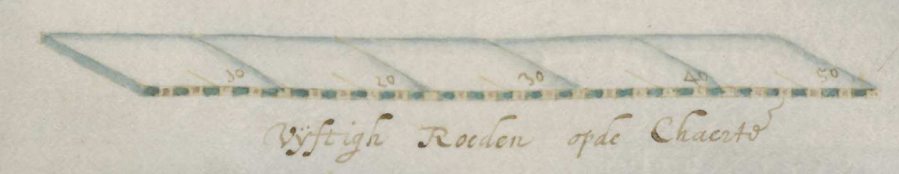 10 20 30 40 50
Vÿftigh Roeden opde Chaerte